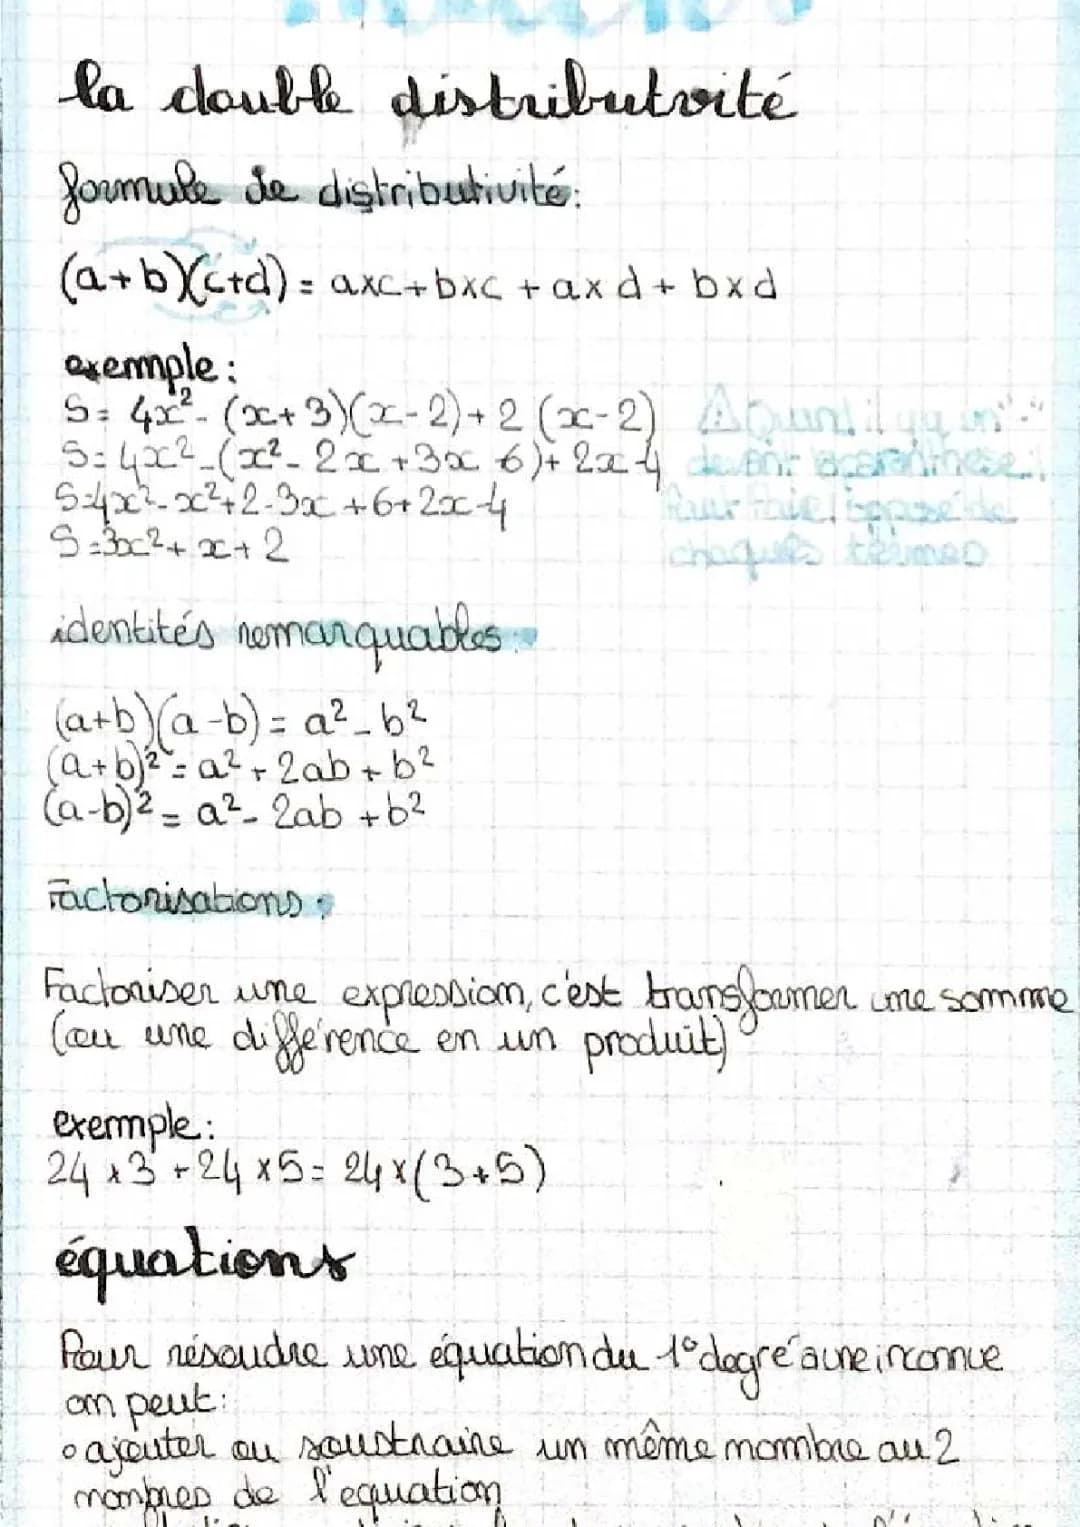 la double distributvité
formule de distributivité:
(a+b)(c+d) = axc+bxc + axd + bxd
exemple:
S= 4x² - (x+3)(x-2)+2(x-2)
⚠ Quand il y y un "-"
S=4x²-(x²-2x+3x 6)+2x-4
devant
S=4x²-x²+2-3x+6+2x-4
faire l'opposé de
S=3x²+x+2
chaques termes
identités remarquables:
(a+b)(a-b)=a²-b²
(a+b)²=a²+2ab+b²
(a-b)²=a²-2ab+b²
Factorisations:
Factoriser une expression, c'est transformer une somme
(ou une différence en un produit)
exemple:
24x3+24x5=24x(3+5)
équations
Pour résoudre une équation du 1° degré a une inconnue
on peut:
o ajouter ou soustraire un même nombre au 2
nombres de l'equation